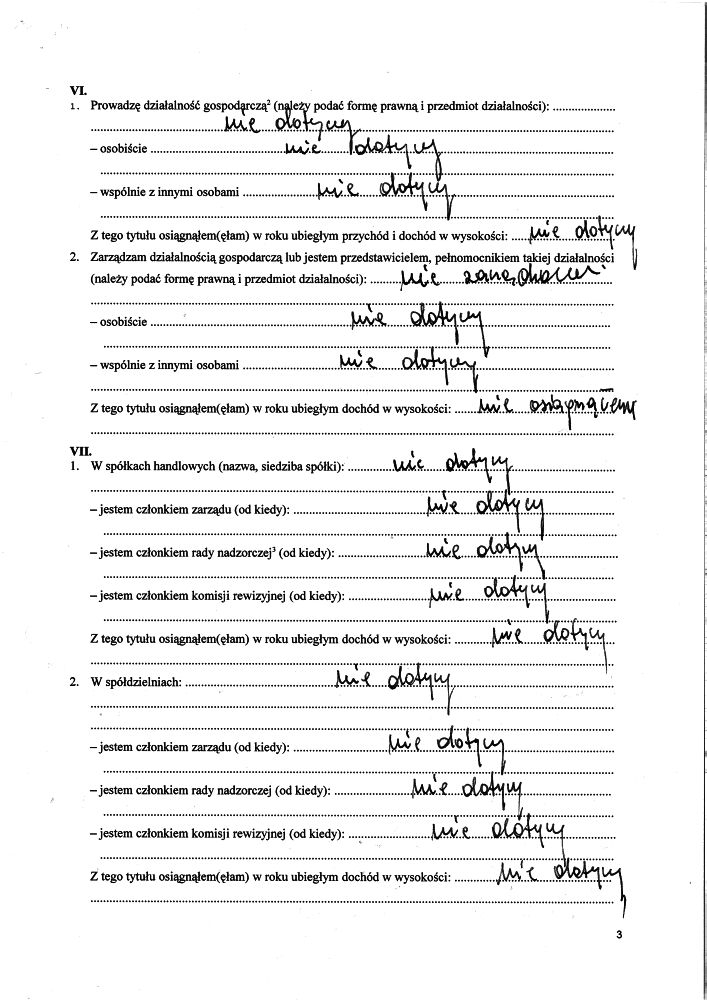 VI.
1. Prowadzę działalność gospodarczą² (należy podać formę prawną i przedmiot działalności): ....................
nie dotyczy
– osobiście nie dotyczy
– wspólnie z innymi osobami nie dotyczy
Z tego tytułu osiągnąłem(ęłam) w roku ubiegłym przychód i dochód w wysokości: nie dotyczy
2. Zarządzam działalnością gospodarczą lub jestem przedstawicielem, pełnomocnikiem takiej działalności
(należy podać formę prawną i przedmiot działalności): nie
– osobiście nie dotyczy
– wspólnie z innymi osobami nie dotyczy
Z tego tytułu osiągnąłem(ęłam) w roku ubiegłym dochód w wysokości: nie
VII.
1. W spółkach handlowych (nazwa, siedziba spółki): nie dotyczy
– jestem członkiem zarządu (od kiedy): nie dotyczy
– jestem członkiem rady nadzorczej³ (od kiedy): nie dotyczy
– jestem członkiem komisji rewizyjnej (od kiedy): nie dotyczy
Z tego tytułu osiągnąłem(ęłam) w roku ubiegłym dochód w wysokości: nie dotyczy
2. W spółdzielniach: nie dotyczy
– jestem członkiem zarządu (od kiedy): nie dotyczy
– jestem członkiem rady nadzorczej (od kiedy): nie dotyczy
– jestem członkiem komisji rewizyjnej (od kiedy): nie dotyczy
Z tego tytułu osiągnąłem(ęłam) w roku ubiegłym dochód w wysokości: nie dotyczy
3